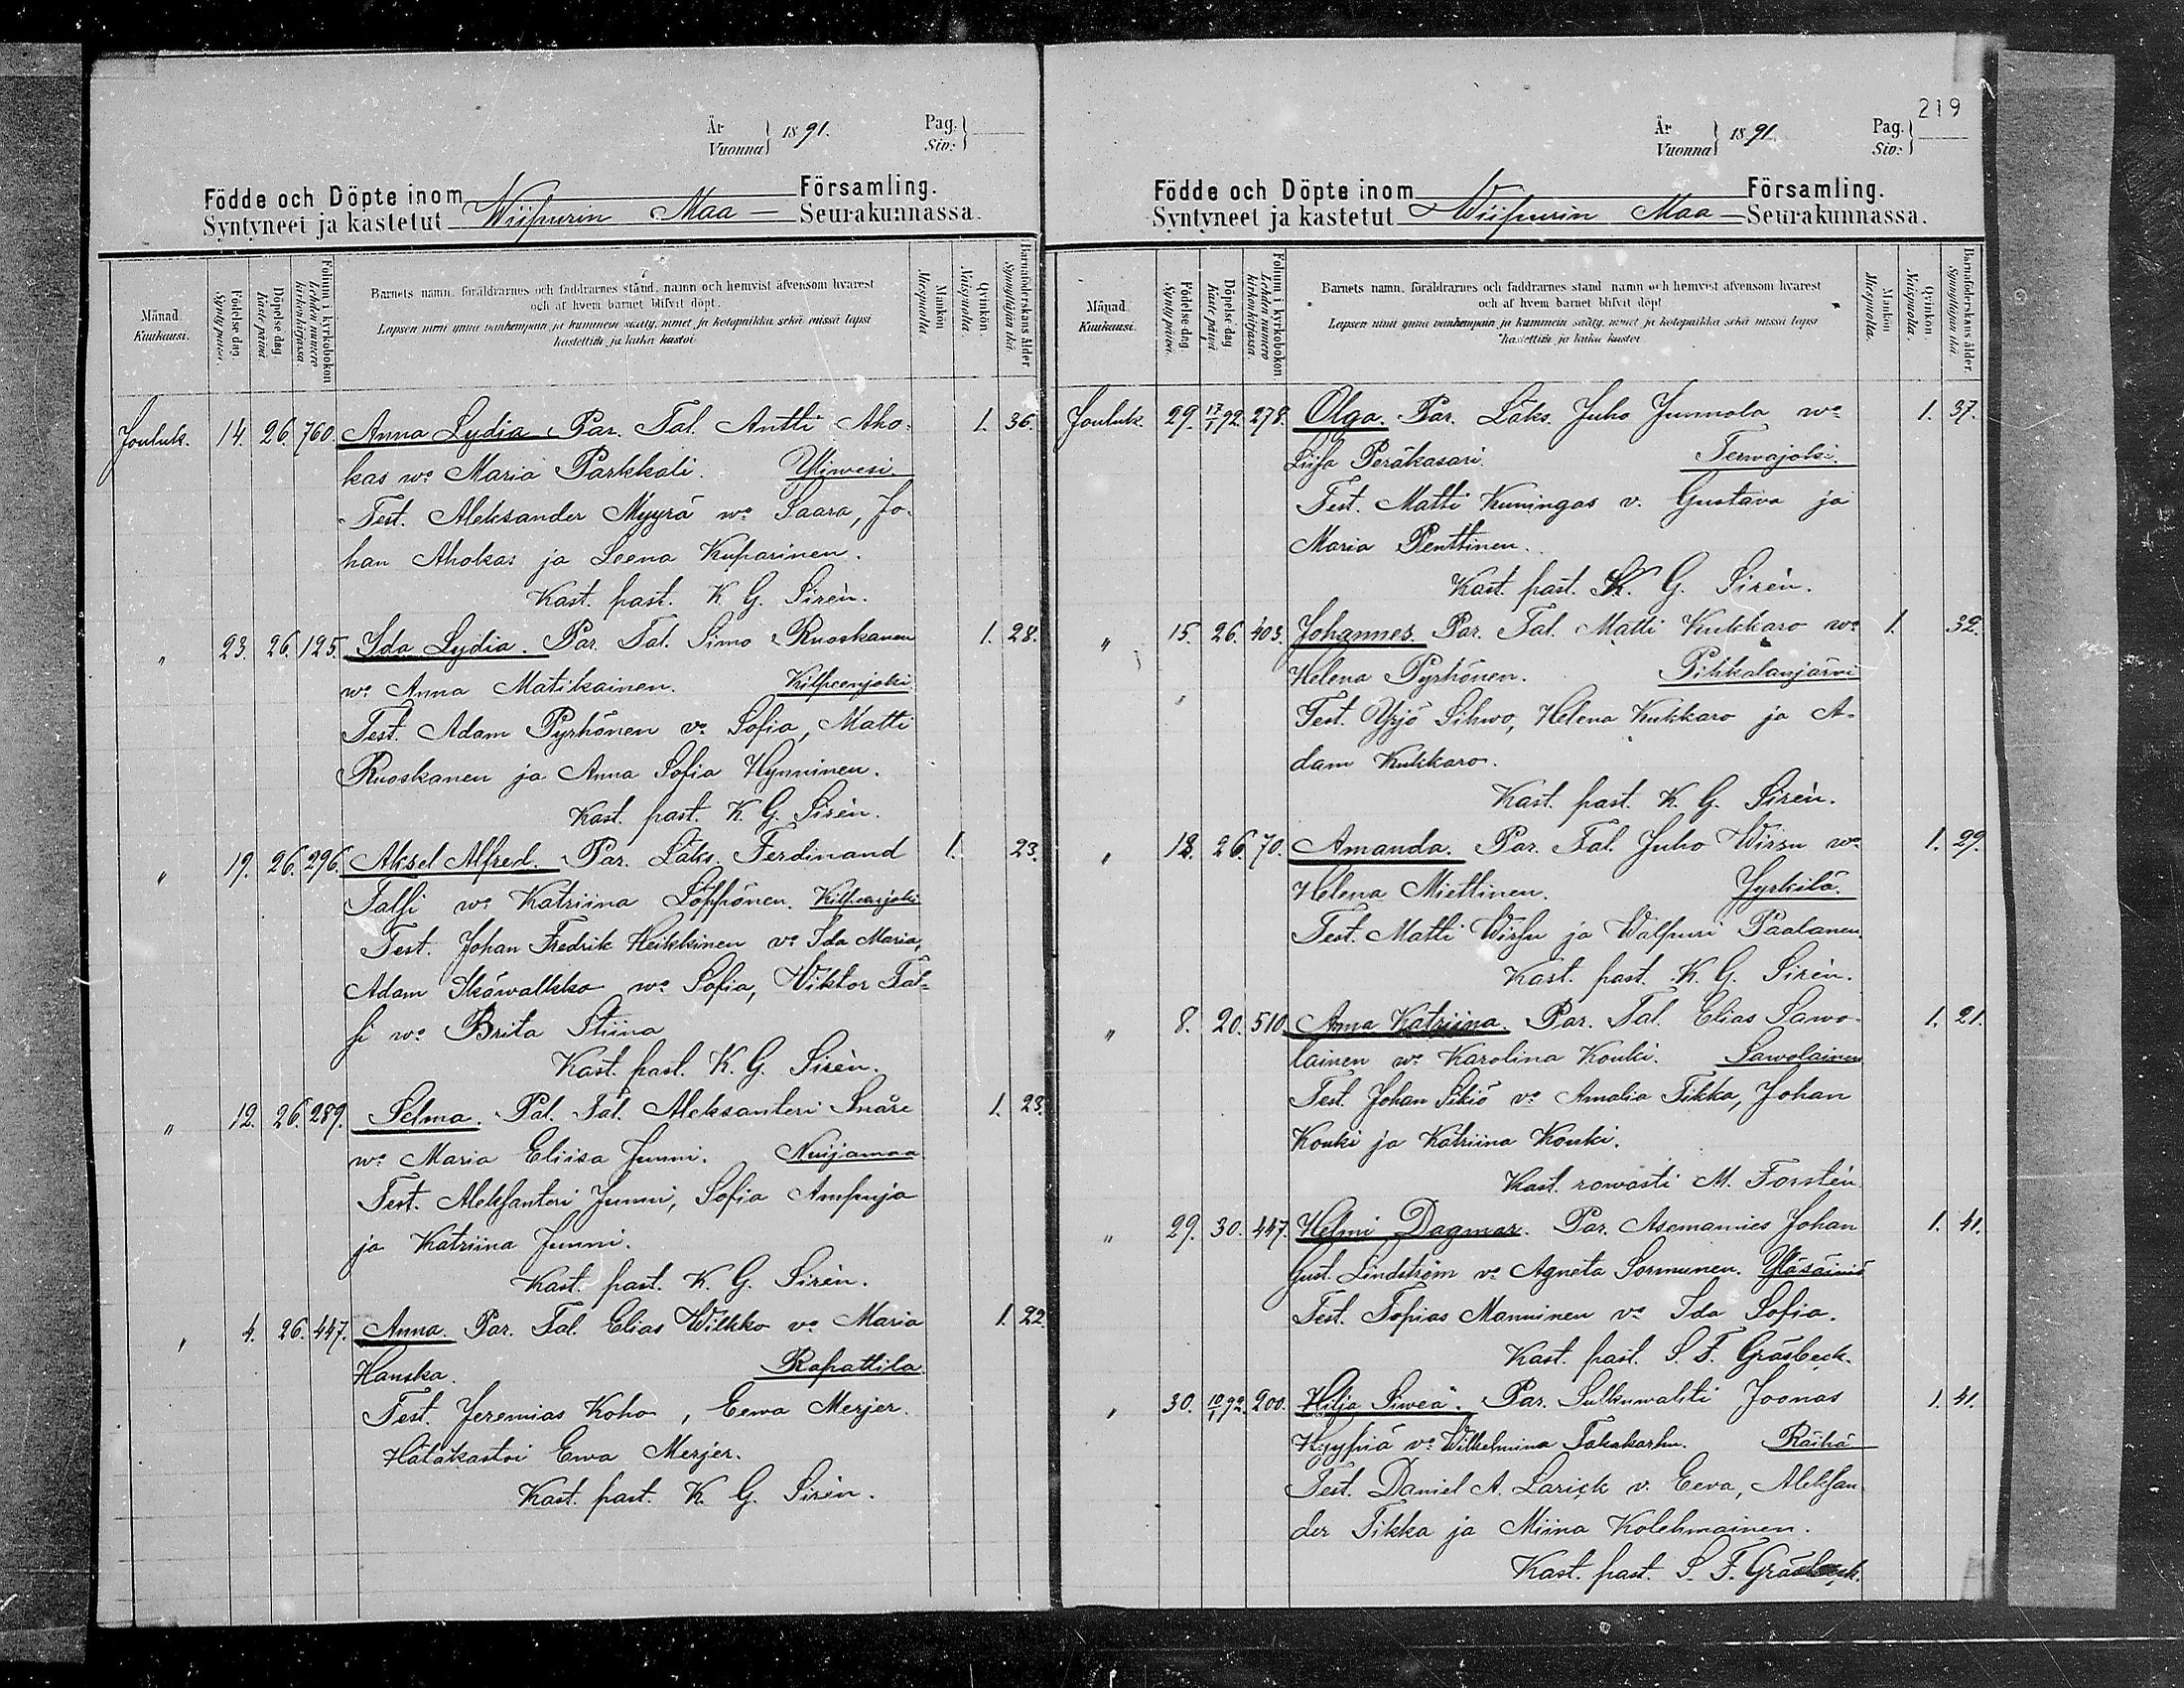 År
Vuonna } 1891.
Pag.
Siv: }
Födde och Döpte inom Församling.
Syntyneet ja kastetut Wiipurin Maa – Seurakunnassa.
Månad.
Kuukausi.
Födelse-dag.
Synty päivä.
Döpelse-dag
Kaste päivä.
Folium i kyrkoboken
Lehden numero
kirkonkirjassa.
Barnets namn, föräldrarnes och faddrarnes stånd, namn och hemvist äfvensom hvarest
och af hvem barnet blifvit döpt.
Lapsen nimi ynnä vanhempain ja kummein sääty, nimet ja kotopaikka sekä missä lapsi
kastettiin ja kuka kastoi
Mankön
Miespuolta.
Qvinkön.
Vaispuolta.
Barnaföderskans ålder
Synnyttäjän ikä.
Jouluk. 14. 26. 760. Anna Lydia. Par. Tal. Antti Aho- 1. 36.
kas wo Maria Parkkali. Yliwesi.
Test. Aleksander Myyrä wo Saara, Jo-
han Ahokas ja Leena Kuparinen.
Kast. past. K. G. Sirèn.
" 23. 26. 125. Ida Lydia. Par. Tal. Simo Ruoskanen 1. 28.
wo Anna Matikainen. Kilpeenjoki
Test. Adam Pyrhönen vo Sofia, Matti
Ruoskanen ja Anna Sofia Hynninen.
Kast. past. K. G. Sirèn.
" 19. 26. 296. Aksel Alfred. Par. Läks. Ferdinand 1. 23.
Talsi wo Katriina Löppönen. Kilpeenjoki
Test. Johan Fredrik Heikkinen vo Ida Maria,
Adam Ikäwalkko wo Sofia, Wiktor Tal-
si wo Brita Stiina
Kast. past. K. G. Sirèn.
" 12. 26. 289. Selma. Pal. Tal. Aleksanteri Snåre 1. 23.
wo Maria Eliisa Junni. Nuijamaa
Test. Aleksanteri Junni, Sofia Ampuja
ja Katriina Junni.
Kast. past. K. G. Sirèn.
" 4. 26. 447. Anna. Par. Tal. Elias Wilkko vo Maria 1. 22.
Hanska. Rapattila.
Test. Jeremias Koho, Eewa Merjer.
Hätäkastoi Ewa Merjer.
Kast. past. K. G. Sirèn.
219
År
Vuonna } 1891.
Pag.
Siv: }
Födde och Döpte inom Församling.
Syntyneet ja kastetut Wiipurin Maa – Seurakunnassa.
Månad
Kuukausi.
Födelse-dag.
Synty päivä.
Döpelse-dag
Kaste päivä.
Folium i kyrkoboken
Lehden numero
kirkonkirjassa.
Barnets namn, föräldrarnes och faddrarnes stånd namn och hemvist äfvensom hvarest
och af hvem barnet blifvit döpt
Lapsen nimi ynnä vanhempain ja kummein sääty, nimet ja kotopaikka sekä missä lapsi
kastettiin ja kuka kastoi
Mankön
Miespuolta.
Qvinkön.
Vaispuolta.
Barnaföderskans ålder.
Synnyttäjän ikä.
Jouluk. 29. 17/1 92. 278. Olga. Par. Läks. Juho Junnola wo 1. 37.
Liisa Peräkasari. Terwajoki.
Test. Matti Kuningas v. Gustava ja
Maria Penttinen.
Kast. past. K. G. Sirèn.
" 15. 26. 403. Johannes. Par. Tal. Matti Kukkaro wo 1. 32.
Helena Pyrhönen. Pihkalanjärvi
Test. Yrjö Sihwo, Helena Kukkaro ja A-
dam Kukkaro.
Kast. past. K. G. Sirèn.
" 18. 26. 70. Amanda. Par. Tal. Juho Wirsu wo 1. 29.
Helena Miettinen. Jyrkilä.
Test. Matti Wirsu ja Walpuri Paalanen.
Kast. past. K. G. Sirèn.
" 8. 20. 510. Anna Katriina. Par. Tal. Elias Sawo- 1. 21.
lainen wo Karolina Kouki. Sawolainen
Test. Johan Sikiö vo Amalia Tikka, Johan
Kouki ja Katriina Kouki.
Kast. rowasti M. Forstén.
" 29. 30. 447. Helmi Dagmar. Par. Asemamies Johan 1. 41.
Gust. Lindström vo Agneta Sormunen. Yläsäiniö
Test. Topias Manninen vo Ida Sofia.
Kast. past. S. F. Gräsbeck.
" 30. 10/1 92. 200. Hilja Siweä. Par. Sulkuwahti Joonas 1. 41.
Kyypiä vo Wilhelmina Takakarhu. Räihä
Test. Daniel A. Larick v. Eeva, Aleksan
der Tikka ja Miina Kolehmainen.
Kast. past. S. F. Gräsbeck.